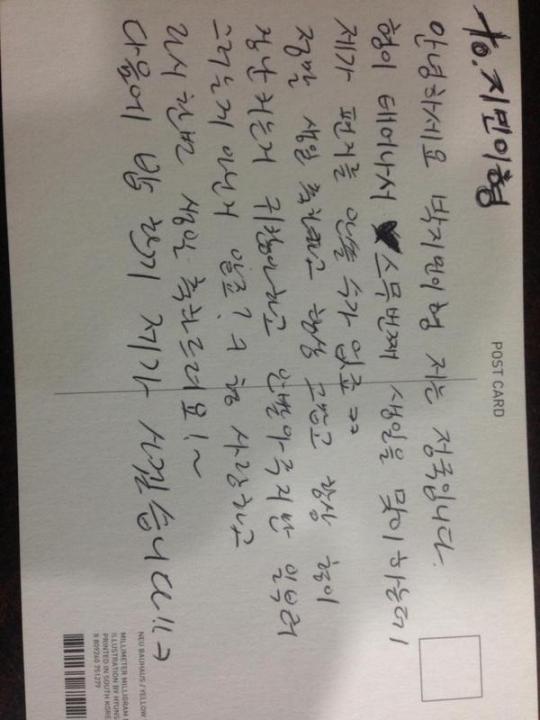 to. 지민이형
POST CARD
안녕하세요 박지민이형 저는 정국입니다.
형이 태어나서 스무번째 생일을 맞이하는데
제가 편지를 안쓸 수가 없죠 ㅋㅋ
정말 생일 축하하고 항상 고맙고 항상 형이
장난치는거 귀찮아하고
그러는게 아닌거 알죠? 형 사랑하고
다시 한번 생일 축하드려요!~
다음에 밥 한끼 제가 사겠습니다!!
NEU BAUHAUS / YELLOW
MILLIMETER MILLIGRAM
ILLUSTRATION BY HYUNS
PRINTED IN SOUTH KORE